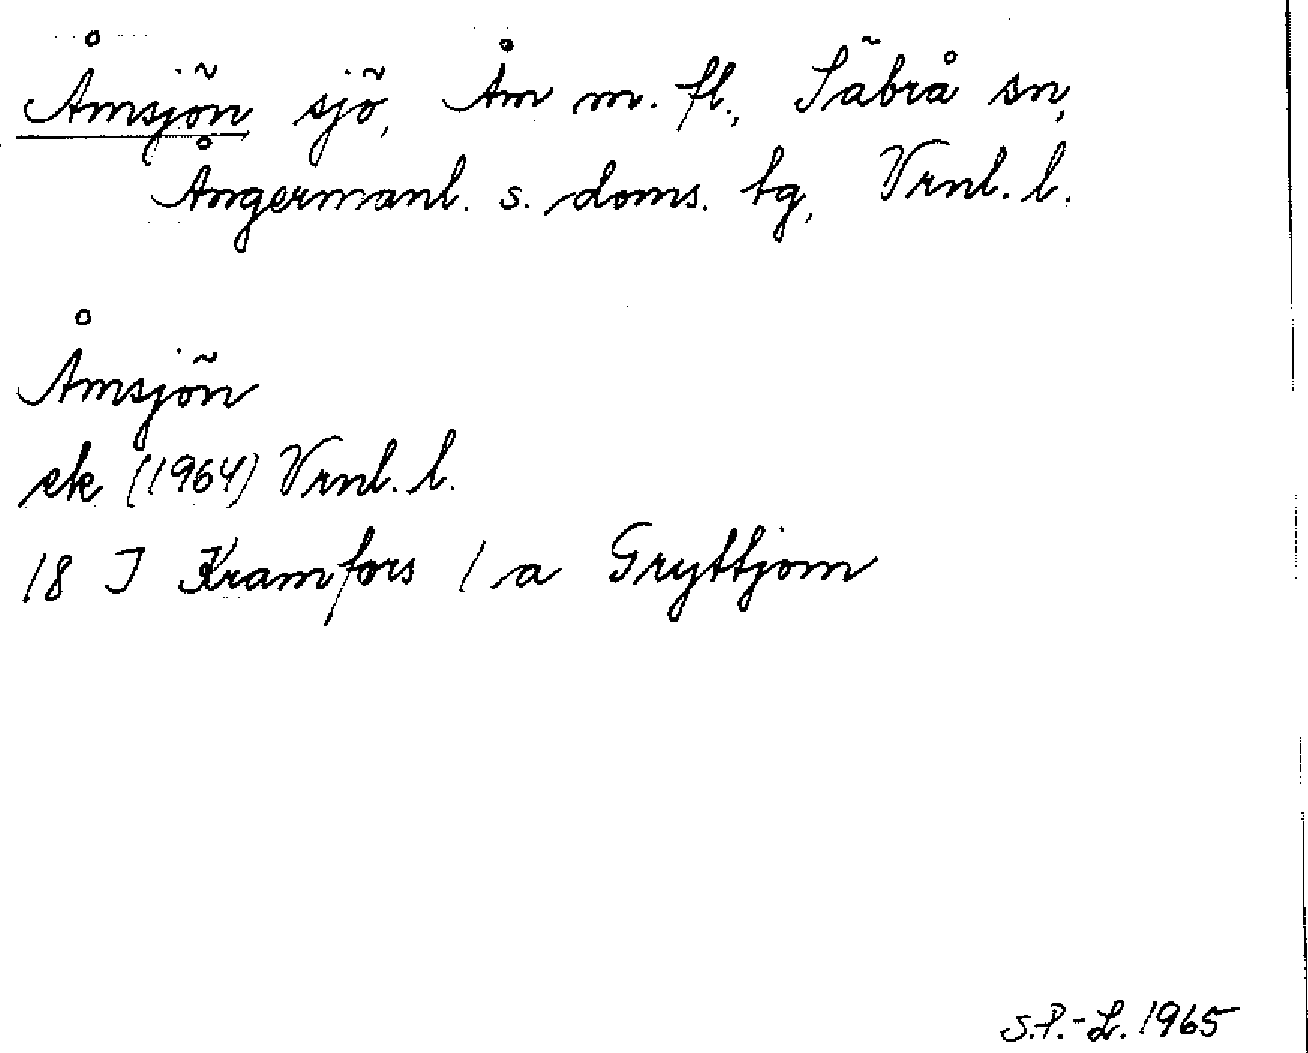 Åmsjön sjö, Åm m. fl., Säbrå sn,
Ångermanl. s. doms. tg, Vrnl. l.
Åmsjön
ek (1964) Vrnl. l.
18 I Kramfors 1 a Gryttjom
S.P.-L. 1965